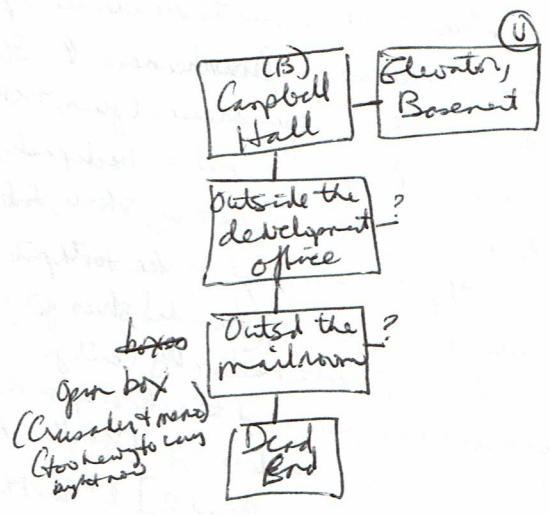 U
(B)
Campbell
Hall
Elevator,
Basement
Outside the
development
office
?
Outsid the
mailroom
?
boxes
open box
(Crusader + memo)
(too heavy to carry
right now
Dead
End